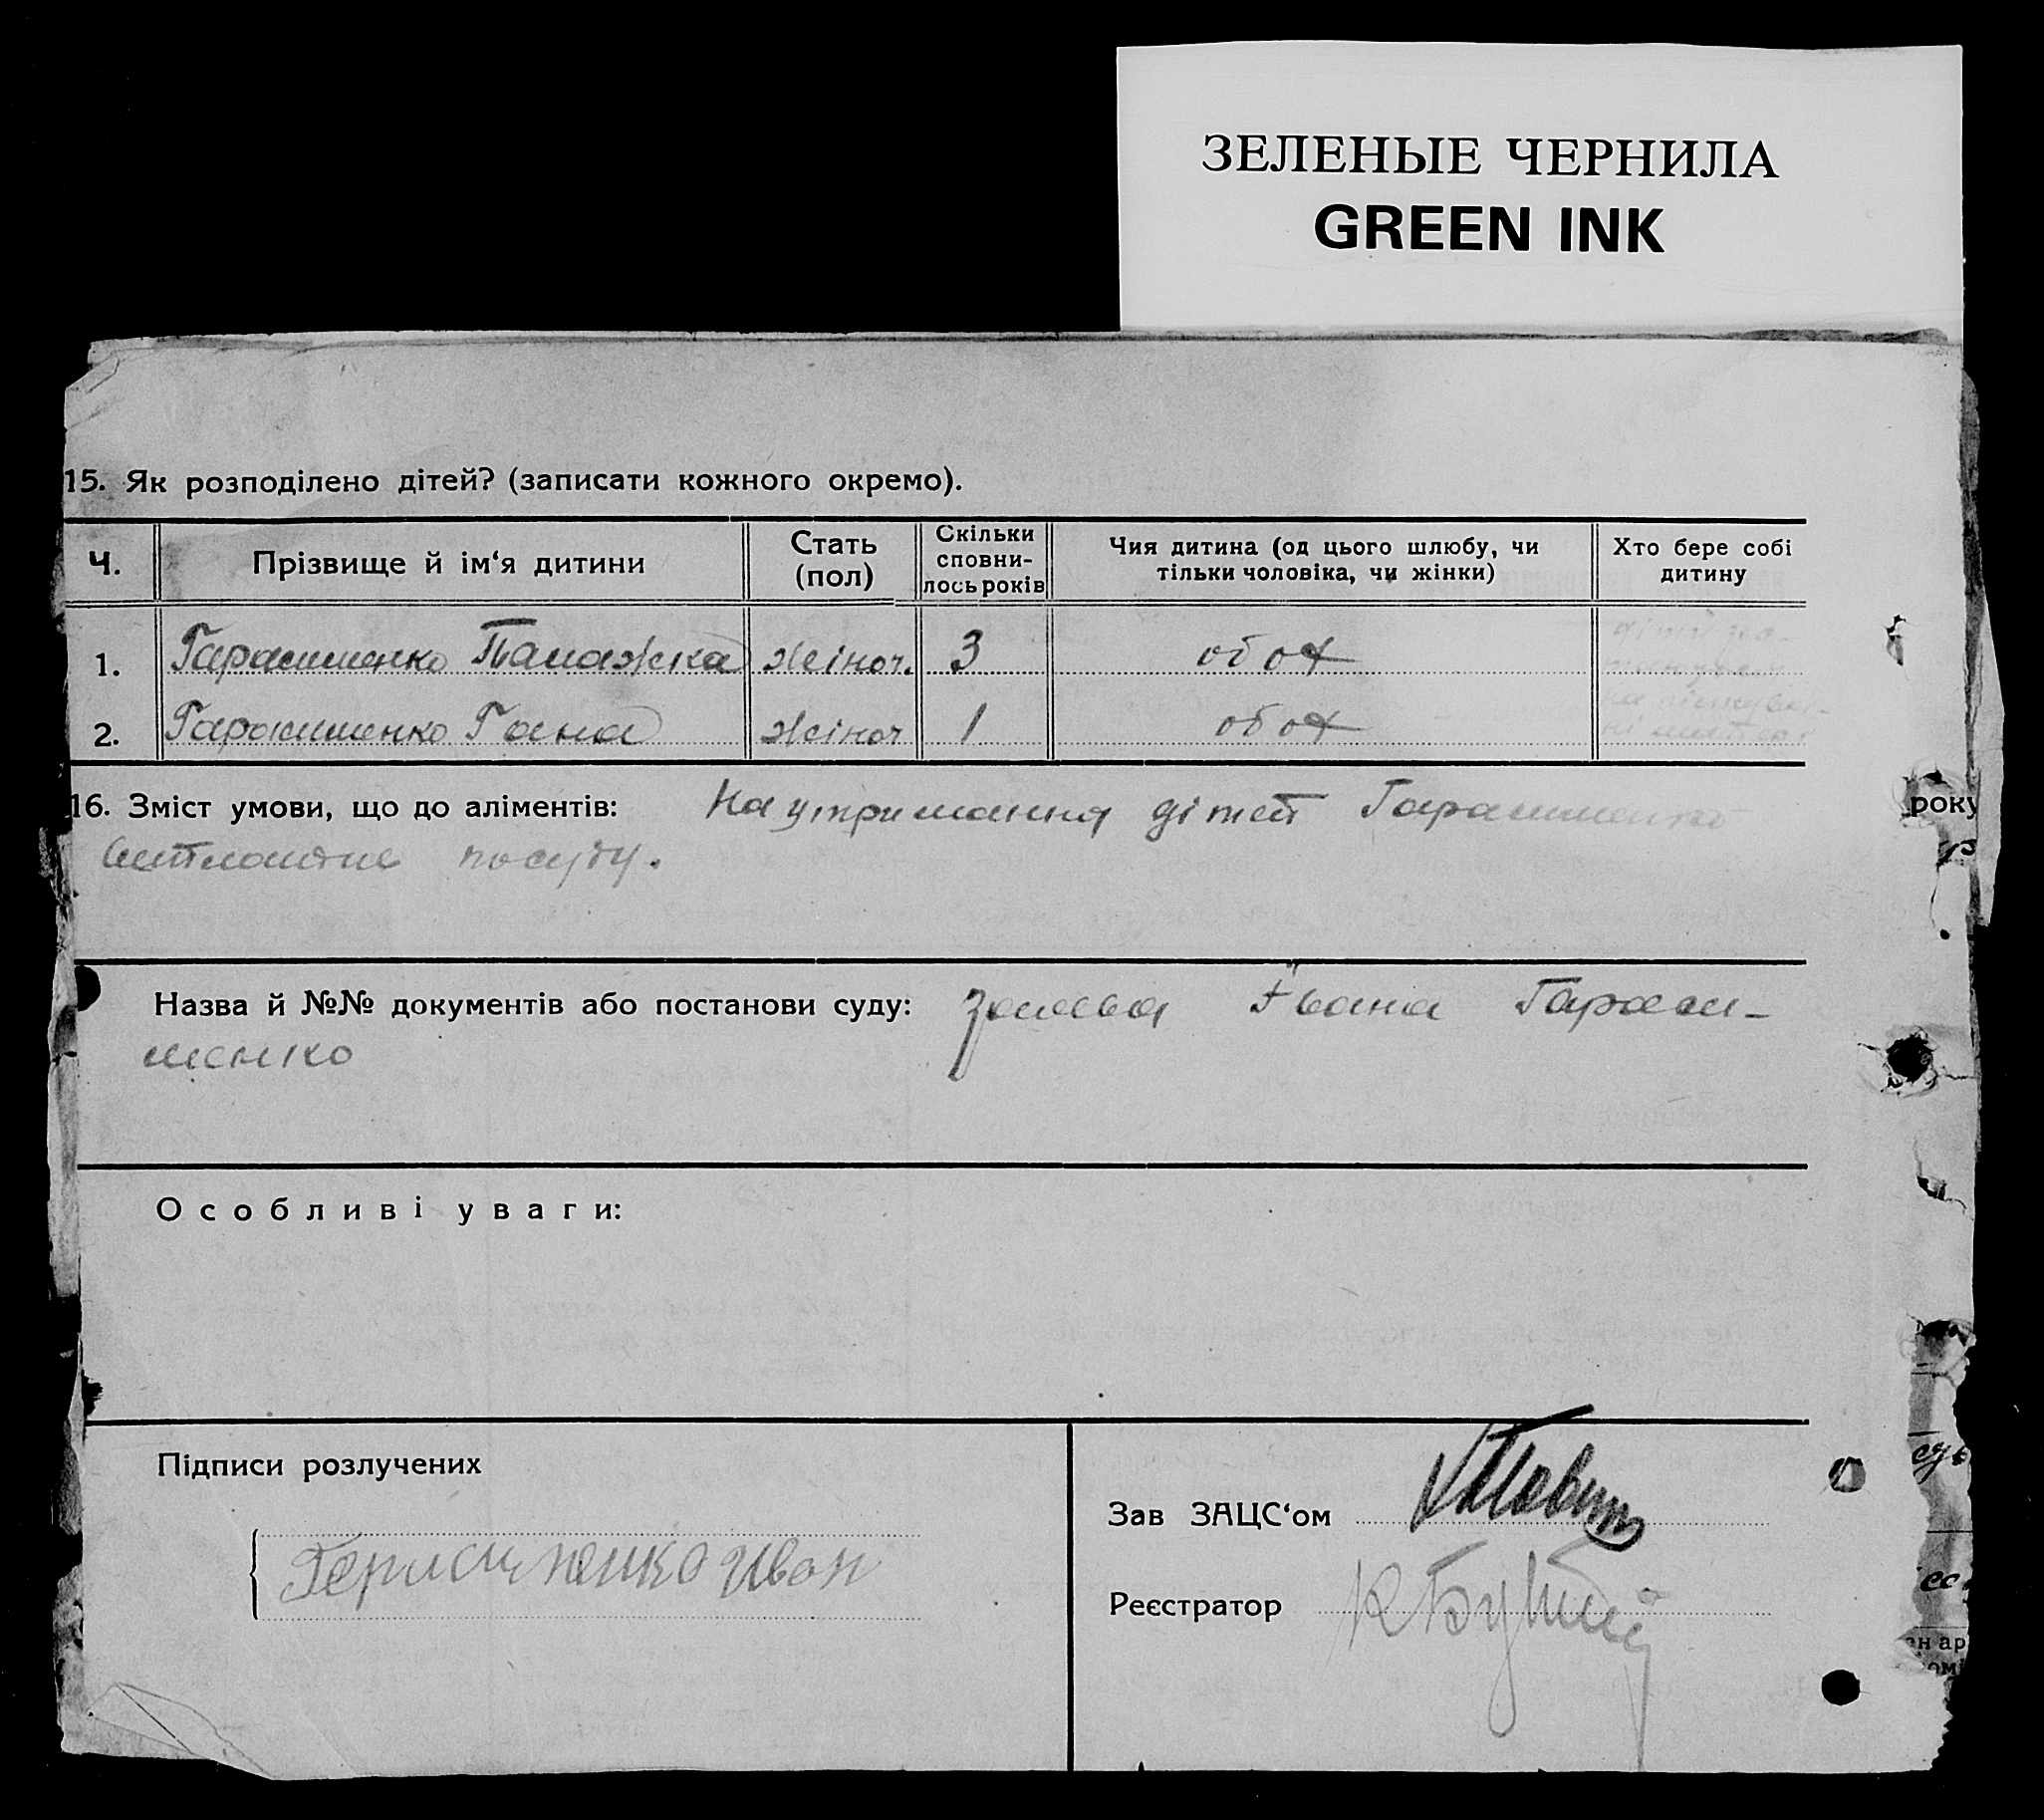 ЗЕЛЕНЫЕ ЧЕРНИЛА
GREEN INK
15. Як розподілено дітей? (записати кожного окремо).
Ч. Прізвище й ім‘я дитини Стать (пол) Скільки сповни-лось років Чия дитина (од цього шлюбу, чи тільки чоловіка, чи жінки) Хто бере собі дитину
1. Гарасименко Палажка жіноч. 3 обох
2. Гарасименко Гана жіноч 1 обох
16. Зміст умови, що до аліментів: На утримання дітей Гарасименко
року
посуду.
Назва й №№ документів або постанови суду: заява Івана Гараси-
менко
Особливі уваги:
Підписи розлучених
Зав ЗАЦС‘ом
Герасименко Иван
Реєстратор